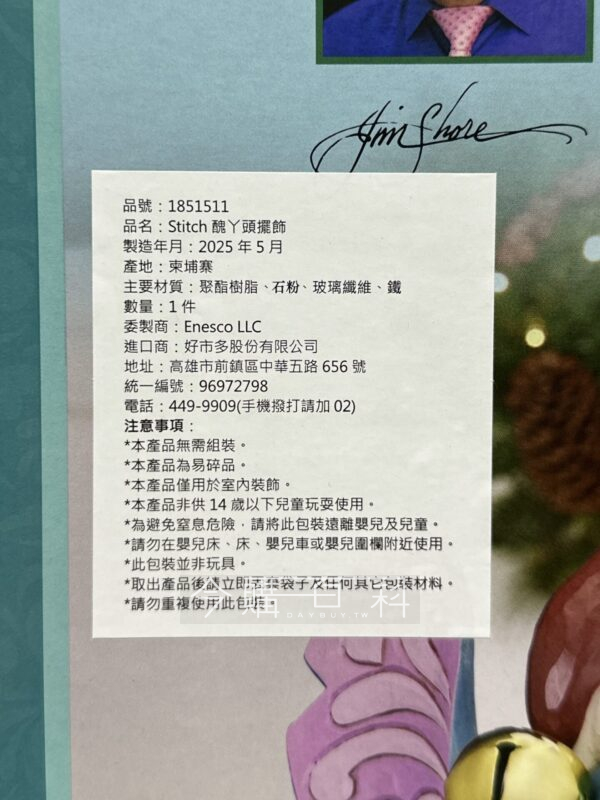 Jim Shore
品號：1851511
品名：Stitch 醜丫頭擺飾
製造年月：2025 年 5 月
產地：柬埔寨
主要材質：聚酯樹脂、石粉、玻璃纖維、鐵
數量：1 件
委製商：Enesco LLC
進口商：好市多股份有限公司
地址：高雄市前鎮區中華五路 656 號
統一編號：96972798
電話：449-9909(手機撥打請加 02)
注意事項：
*本產品無需組裝。
*本產品為易碎品。
*本產品僅用於室內裝飾。
*本產品非供 14 歲以下兒童玩耍使用。
*為避免窒息危險，請將此包裝遠離嬰兒及兒童。
*請勿在嬰兒床、床、嬰兒車或嬰兒圍欄附近使用。
*此包裝並非玩具。
*取出產品後請立即丟棄袋子及任何其它包裝材料。
*請勿重複使用此包裝。
今購百科
DAYBUY.TW